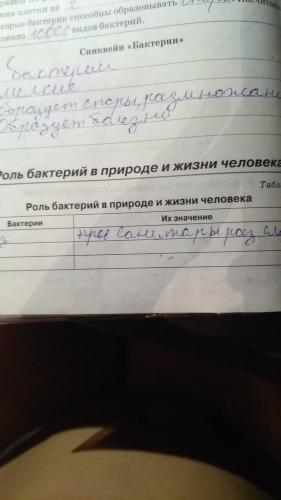 ния клетки на 2
торые бактерии способны образовывать
около 10000 видов бактерий.
Синквейн «Бактерии»
бактерии
мелкие
образует споры, размножан
Образует болезни
Роль бактерий в природе и жизни человека
Табли
Роль бактерий в природе и жизни человека
Бактерии Их значение
санитары, раз